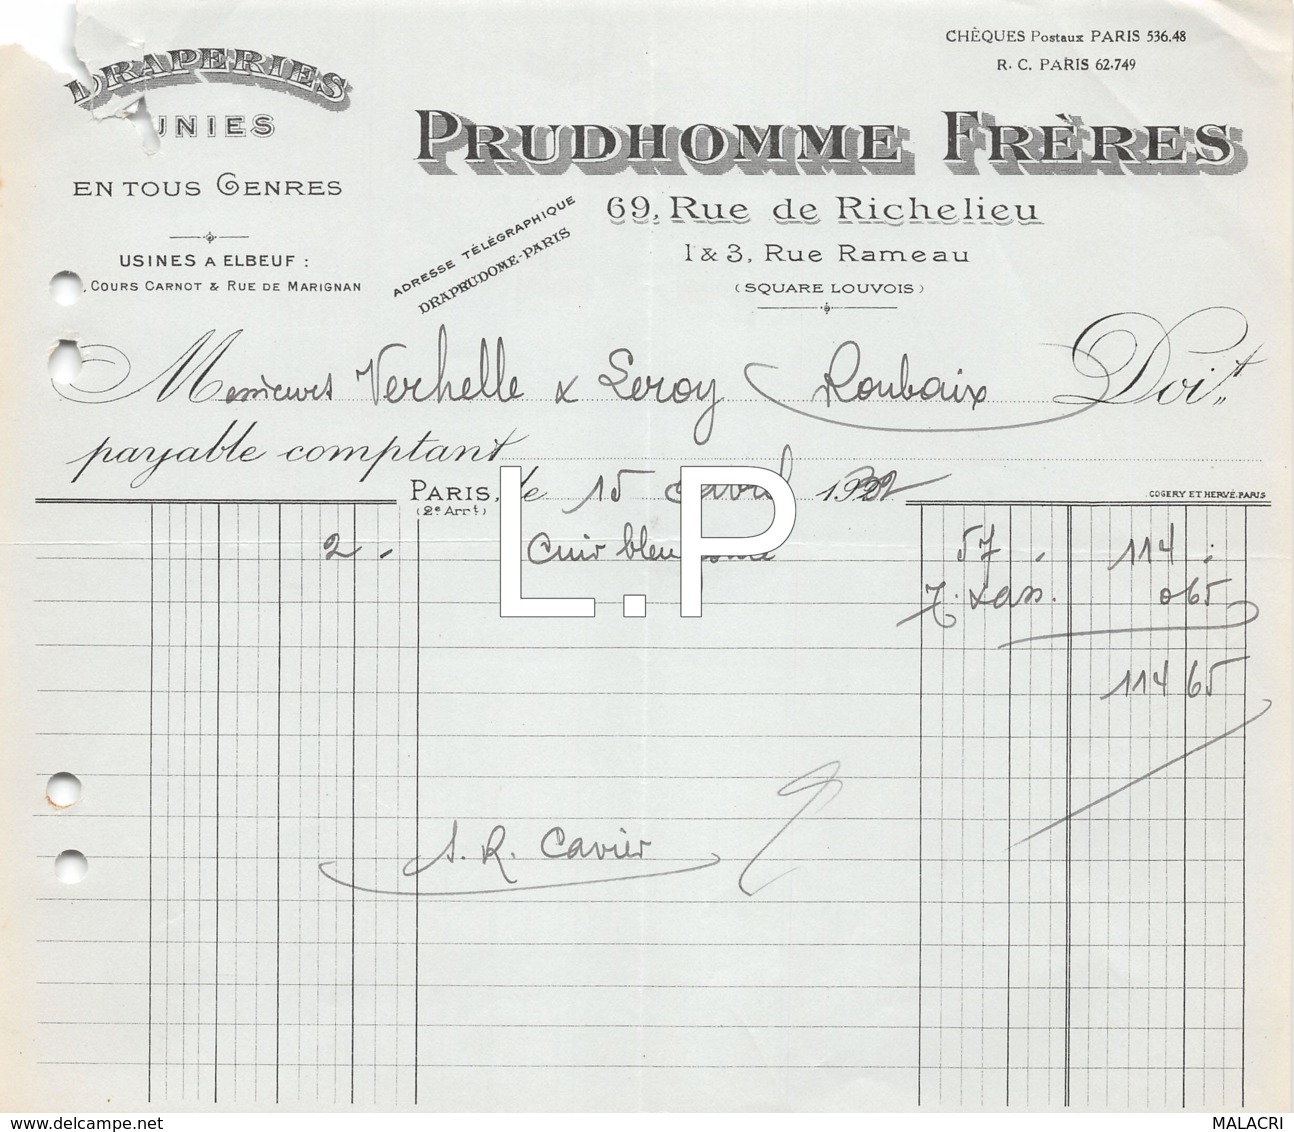 CHÈQUES Postaux PARIS 536.48
R. C. PARIS 62.749
DRAPERIES
UNIES
EN TOUS GENRES
USINES A ELBEUF :
, COURS CARNOT & RUE DE MARIGNAN
ADRESSE TÉLÉGRAPHIQUE
DRAPRUDOME-PARIS
PRUDHOMME FRÈRES
69, Rue de Richelieu
1 & 3, Rue Rameau
(SQUARE LOUVOIS)
Messieurs Verhelle & Leroy Roubaix Doit
payable comptant
PARIS, le 15 avril 1932
(2e Arrt)
COGERY ET HERVÉ. PARIS
2 - Cuir bleu 57 . 114 :
0 65
114 65
S. R. Cavier
L.P
www.delcampe.net
MALACRI